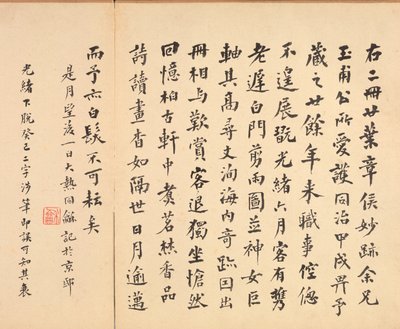 右二冊廿葉章侯妙跡余兄
玉甫公所愛護同治甲戌畀予
藏之廿餘年來職事倥傯
不遑展翫光緒六月客有攜
老遲白門剪雨圖並神女巨
軸其高尋丈洵海內奇跡因出
冊相与歎賞客退獨坐愴然
回憶柏古軒中煑茗焚香品
詩讀畫杳如隔世日月逾邁
而予亦白鬚不可耘矣
是月望後一日大熱回龢記於京邸
光緒下脫癸巳二字涉筆即誤可知其衰